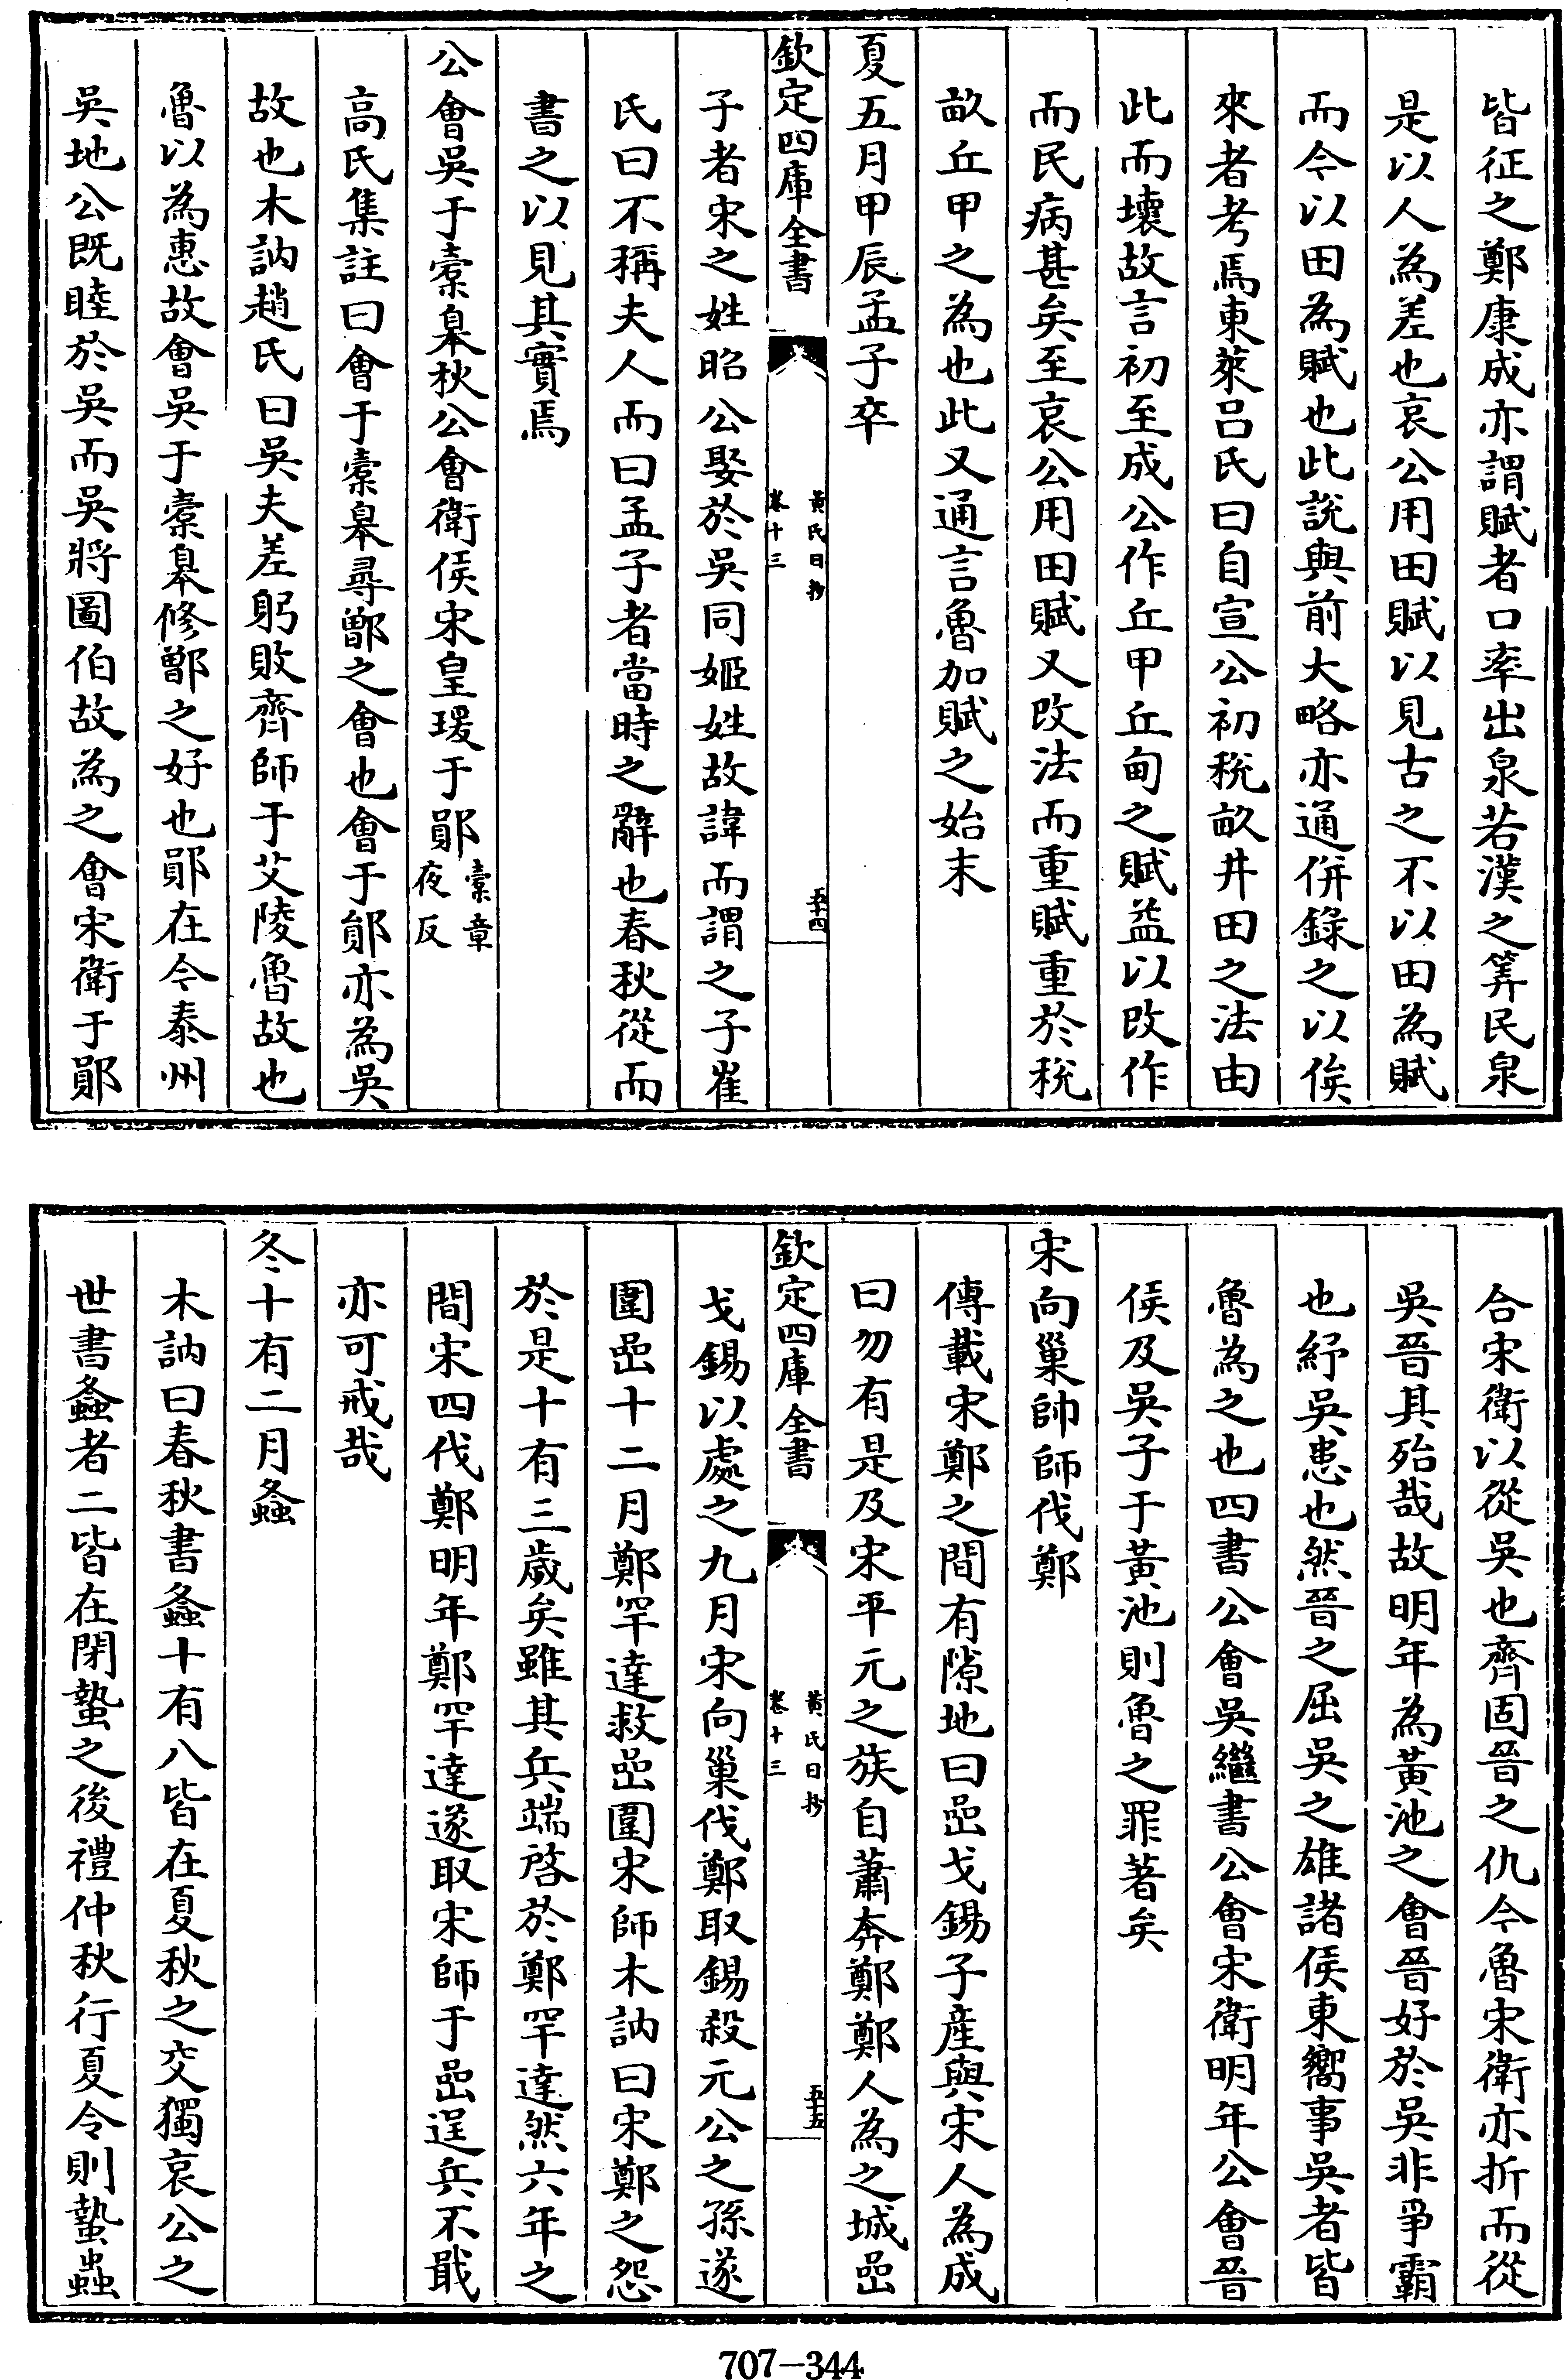 皆征之鄭康成亦謂賦者口率出泉若漢之筭民泉
是以人為差也哀公用田賦以見古之不以田為賦
而今以田為賦也此説與前大略亦通併錄之以俟
來者考焉東萊吕氏曰自宣公初税畝井田之法由
此而壞故言初至成公作丘甲丘甸之賦益以改作
而民病甚矣至哀公用田賦又改法而重賦重於税
畝丘甲之為也此又通言魯加賦之始末
夏五月甲辰孟子卒
欽定四庫全書
黄氏日抄
卷十三
五十四
子者宋之姓昭公娶於吳同姬姓故諱而謂之子崔
氏曰不稱夫人而曰孟子者當時之辭也春秋從而
書之以見其實焉
公會吳于橐臯秋公會衛侯宋皇瑗于鄖橐章
夜反
高氏集註曰會于橐臯尋鄫之會也會于鄖亦為吳
故也木訥趙氏曰吳夫差躬敗齊師于艾陵魯故也
魯以為惠故會吳于橐臯修鄫之好也鄖在今泰州
吳地公既睦於吳而吳將圖伯故為之會宋衛于鄖
合宋衛以從吳也齊固晉之仇今魯宋衛亦折而從
吳晉其殆哉故明年為黄池之會晉好於吳非爭霸
也紓吳患也然晉之屈吳之雄諸侯東嚮事吳者皆
魯為之也四書公會吳繼書公會宋衛明年公會晉
侯及吳子于黄池則魯之罪著矣
宋向巢帥師伐鄭
傳載宋鄭之間有隙地曰嵒戈錫子産與宋人為成
曰勿有是及宋平元之族自蕭奔鄭鄭人為之城嵒
欽定四庫全書
黄氏日抄
卷十三
五十五
戈錫以處之九月宋向巢伐鄭取錫殺元公之孫遂
圍嵒十二月鄭罕達救嵒圍宋師木訥曰宋鄭之怨
於是十有三歲矣雖其兵端啓於鄭罕達然六年之
間宋四伐鄭明年鄭罕達遂取宋師于嵒逞兵不戢
亦可戒哉
冬十有二月螽
木訥曰春秋書螽十有八皆在夏秋之交獨哀公之
世書螽者二皆在閉蟄之後禮仲秋行夏令則蟄蟲
707-344